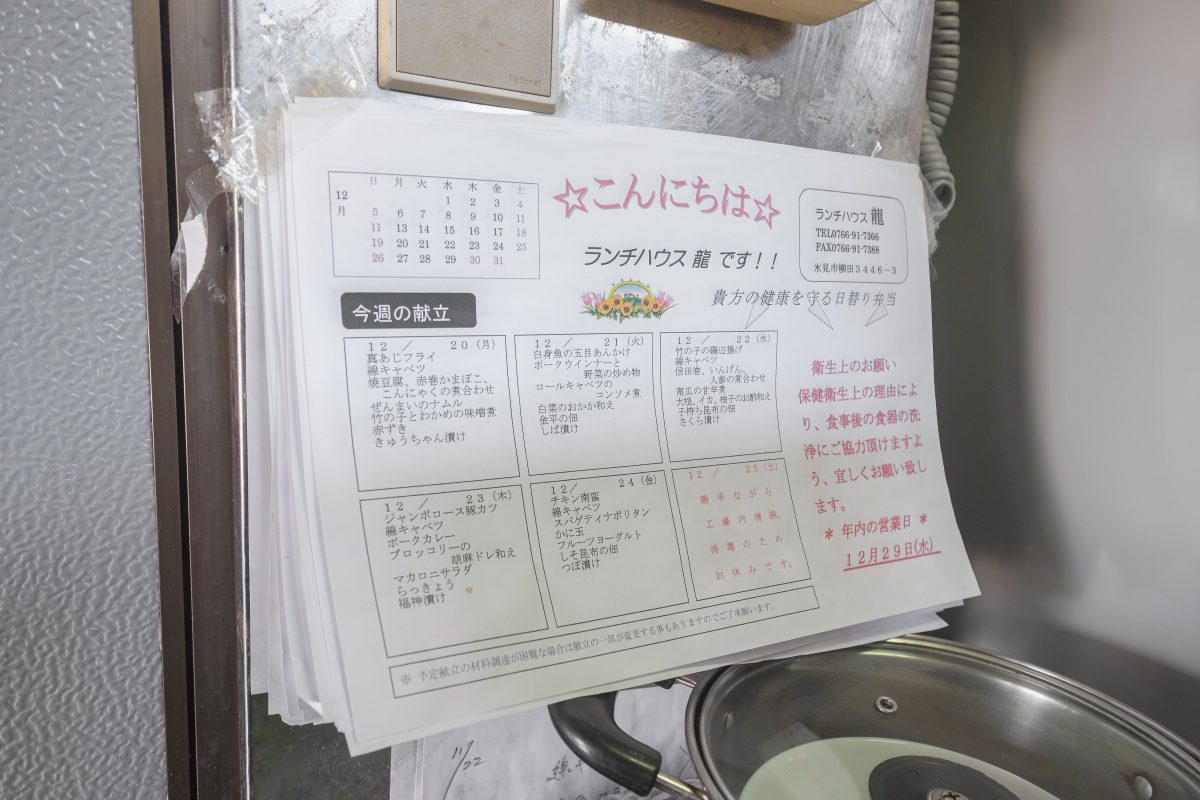 National
12月
日 月 火 水 木 金 土
1 2 3 4
5 6 7 8 9 10 11
11 13 14 15 16 17 18
19 20 21 22 23 24 25
26 27 28 29 30 31
☆こんにちは☆
ランチハウス 龍 です!!
ランチハウス 龍
TEL0766-91-7366
FAX0766-91-7388
氷見市柳田3446-3
貴方の健康を守る日替り弁当
今週の献立
12/20(月)
真あじフライ
線キャベツ
焼豆腐、赤巻かまぼこ、
こんにゃくの煮合わせ
ぜんまいのナムル
竹の子とわかめの味噌煮
赤ずき
きゅうちゃん漬け
12/21(火)
白身魚の五目あんかけ
ポークウインナーと
野菜の炒め物
ロールキャベツの
コンソメ煮
白菜のおかか和え
金平の佃
しば漬け
12/22(水)
竹の子の磯辺揚げ
線キャベツ
信田巻、いんげん、
人参の煮合わせ
南瓜の甘辛煮
大根、イカ、柚子のお酢和え
子持ち昆布の佃
さくら漬け
12/23(木)
ジャンボロース豚カツ
線キャベツ
ポークカレー
ブロッコリーの
胡麻ドレ和え
マカロニサラダ
らっきょう
福神漬け
12/24(金)
チキン南蛮
線キャベツ
スパゲティナポリタン
かに玉
フルーツヨーグルト
しそ昆布の佃
つぼ漬け
12/25(土)
勝手ながら
工場内清掃、
消毒のため
お休みです。
衛生上のお願い
保健衛生上の理由によ
り、食事後の食器の洗
浄にご協力頂けますよ
う、宜しくお願い致し
ます。
* 年内の営業日 *
12月29日(水)
※ 予定献立の材料調達が困難な場合は献立の一部が変更する事もありますのでご了承願います。
11/22